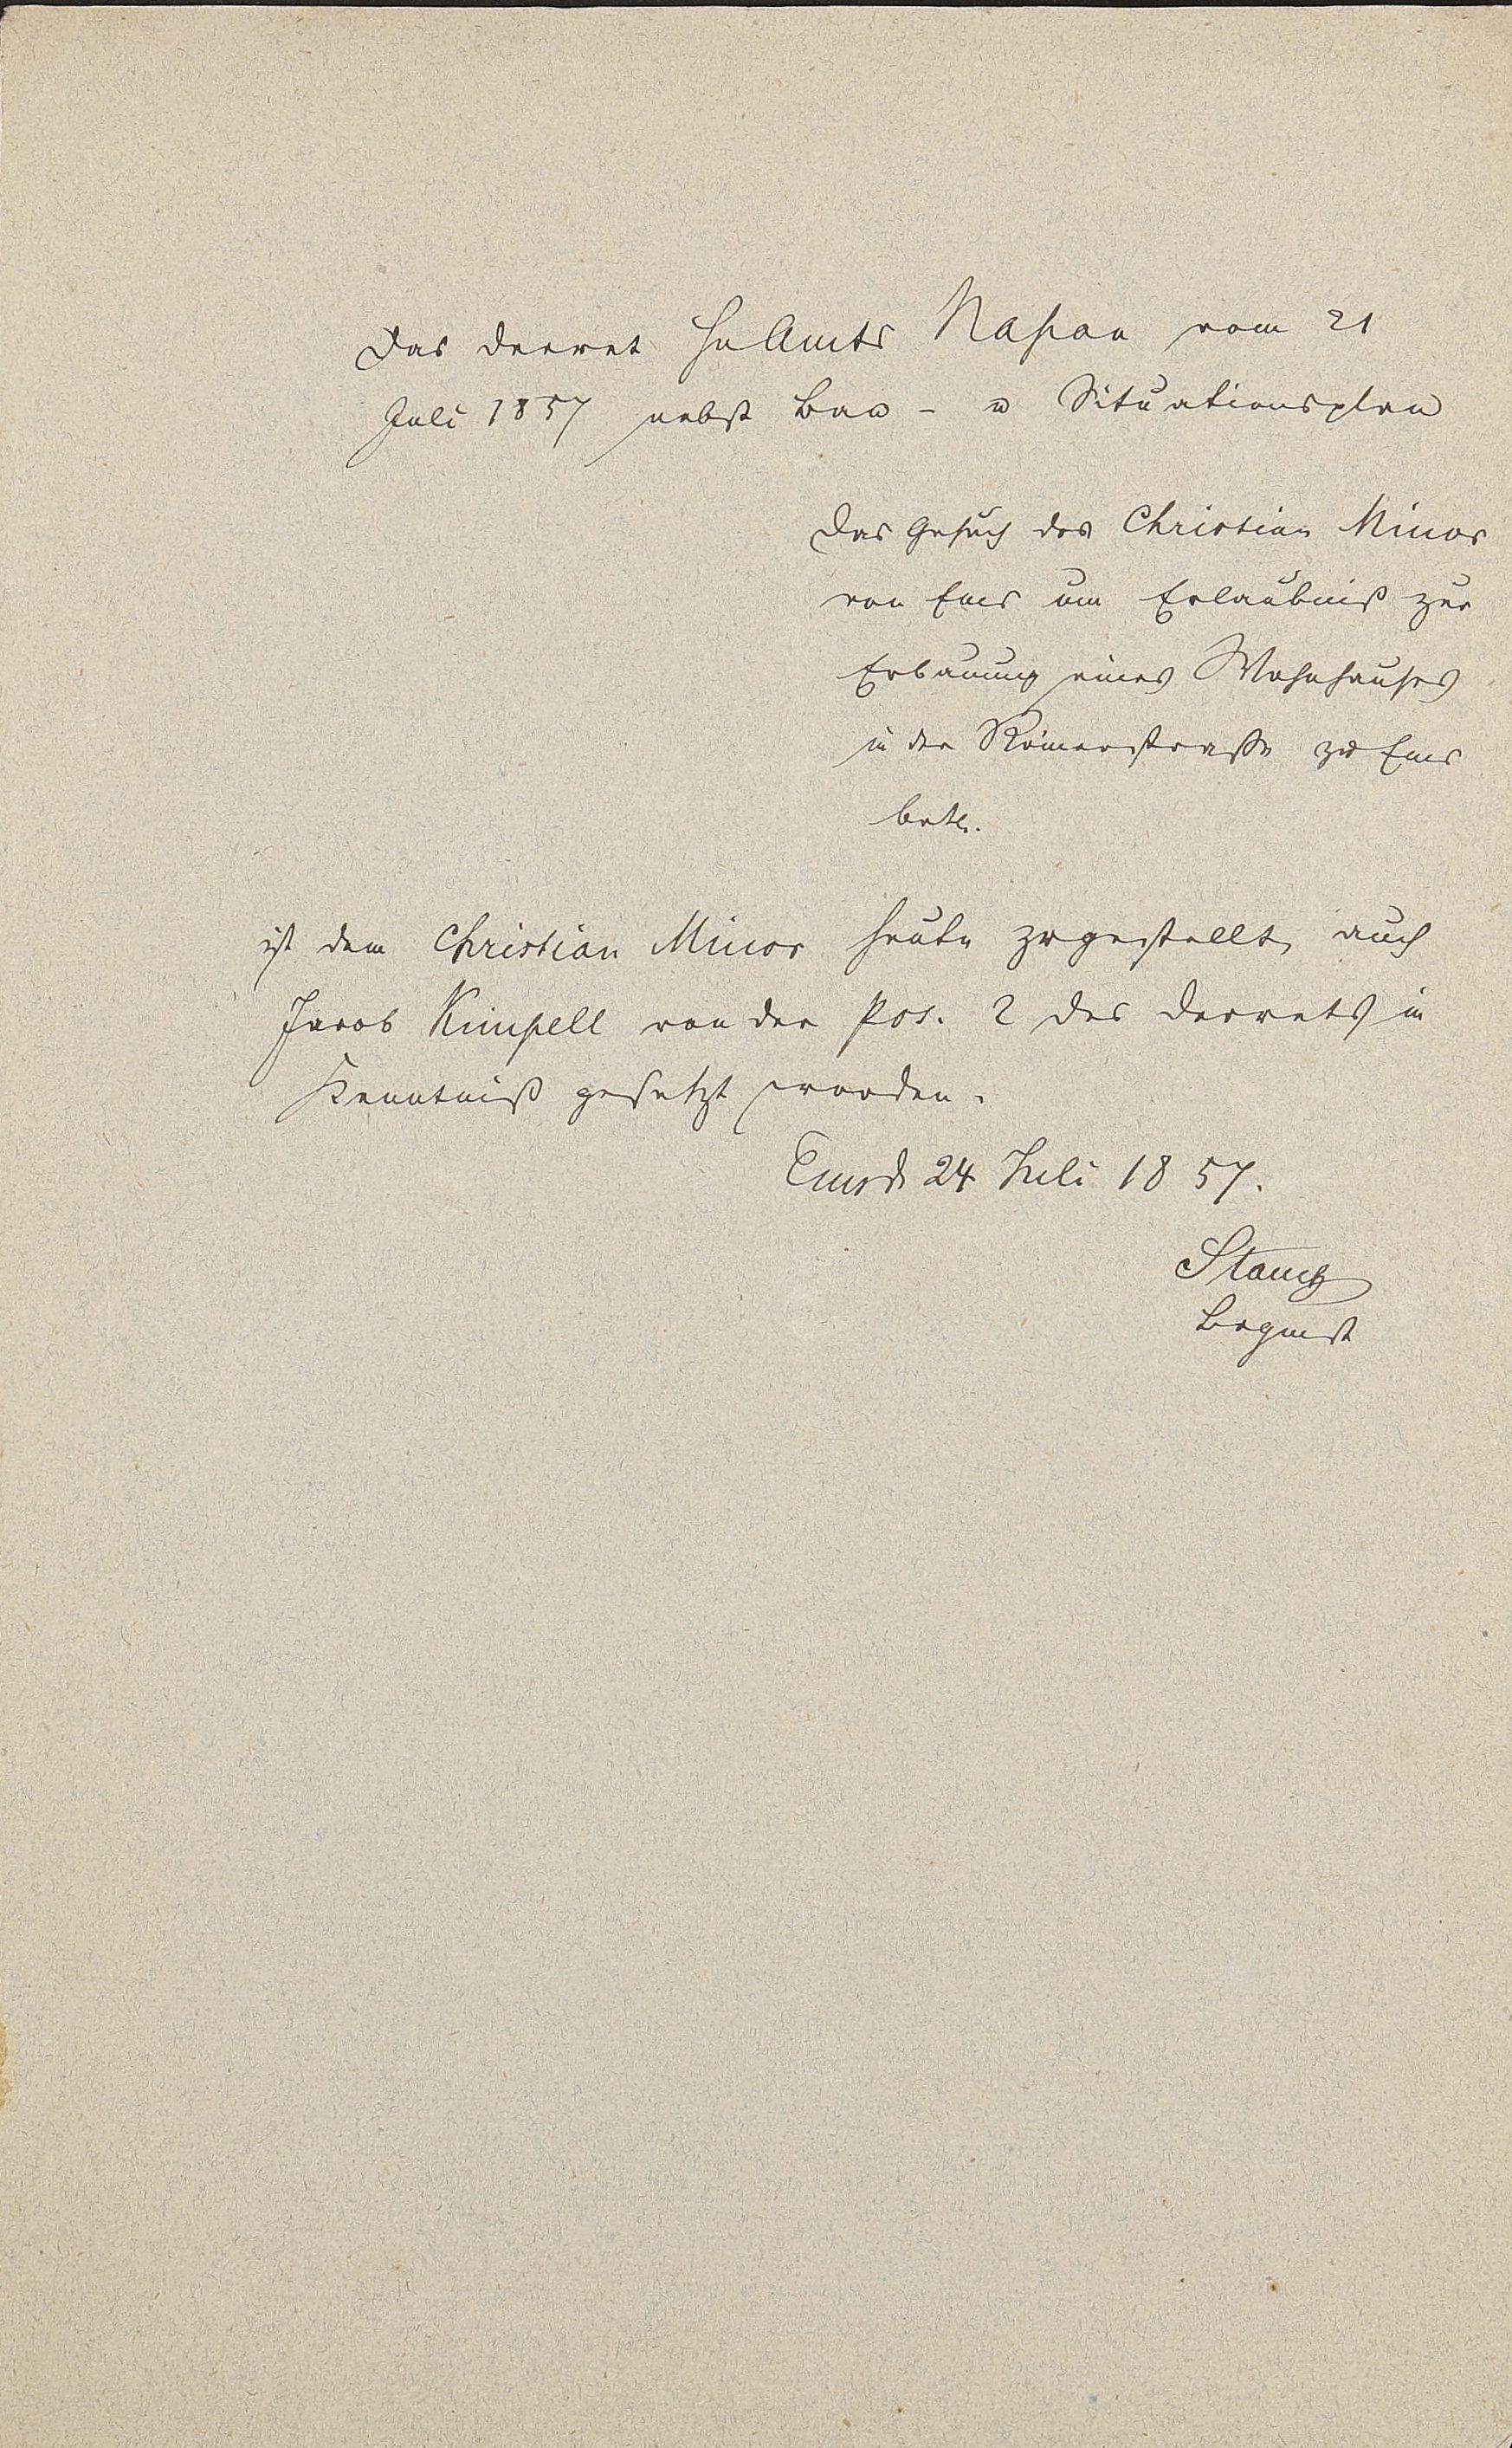 Das Decret Hr Amts Nassau vom 21
Juli 1857 nebst Bau- u Situationsplan
Das Gesuch des Christian Minor
von Ems um Erlaubniß zur
Erbauung eines Wohnhauses
in der Römerstrasse zu Ems
betr.
ist dem Christian Minor heute zugestellt, auch
Jacob Kimpell von der Pos. 2 des Decrets in
Kenntniß gesetzt worden.
Ems d. 24 Juli 1857.
Brgmst